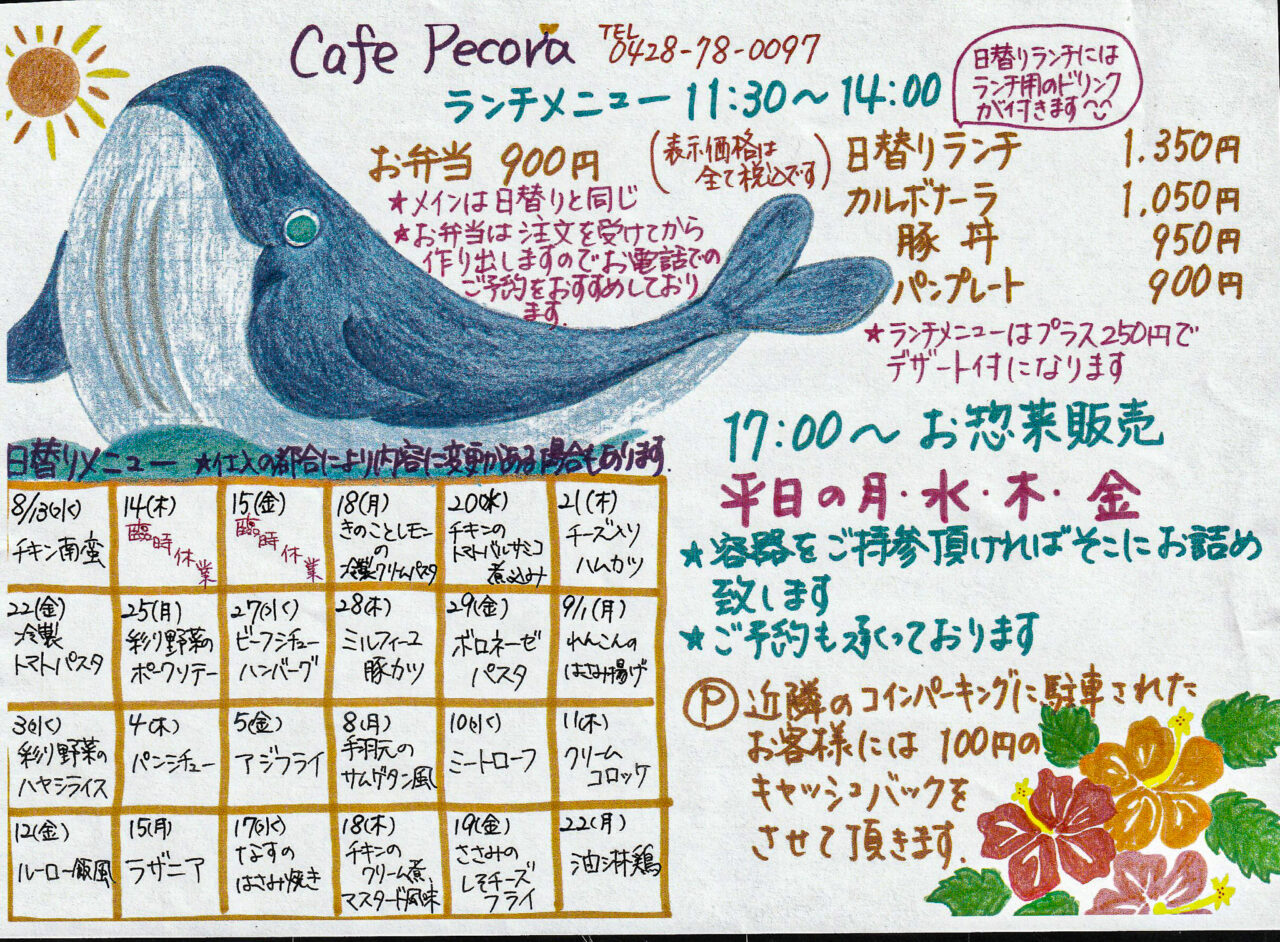 Cafe Pecora
TEL
0428-78-0097
ランチメニュー 11:30～14:00
日替りランチには
ランチ用のドリンク
が付きます
お弁当 900円
(表示価格は
全て税込です)
★メインは日替りと同じ
★お弁当は注文を受けてから
作り出しますのでお電話での
ご予約をおすすめしており
ます.
日替りランチ 1.350円
カルボナーラ 1,050円
豚丼 950円
パンプレート 900円
★ランチメニューはプラス250円で
デザート付になります
17:00～お惣菜販売
平日の月・水・木・金
★容器をご持参頂ければそこにお詰め
致します
★ご予約も承っております
Ⓟ近隣のコインパーキングに駐車された
お客様には100円の
キャッシュバックを
させて頂きます.
日替りメニュー ★仕入の都合により内容に変更がある場合もあります.
8/13(水)
チキン南蛮
14(木)
臨時休業
15(金)
臨時休業
18(月)
きのことレモン
の
冷製クリームパスタ
20(水)
チキンの
トマトバルサミコ
煮込み
21(木)
チーズ入り
ハムカツ
22(金)
冷製
トマトパスタ
25(月)
彩り野菜の
ポークソテー
27(水)
ビーフシチュー
ハンバーグ
28(木)
ミルフィーユ
豚カツ
29(金)
ボロネーゼ
パスタ
9/1(月)
れんこんの
はさみ揚げ
3(水)
彩り野菜の
ハヤシライス
4(木)
パンシチュー
5(金)
アジフライ
8(月)
手羽元の
サムゲタン風
10(水)
ミートローフ
11(木)
クリーム
コロッケ
12(金)
ルーロー飯風
15(月)
ラザニア
17(水)
なすの
はさみ焼き
18(木)
チキンの
クリーム煮
マスタード風味
19(金)
ささみの
しそチーズ
フライ
22(月)
油淋鶏